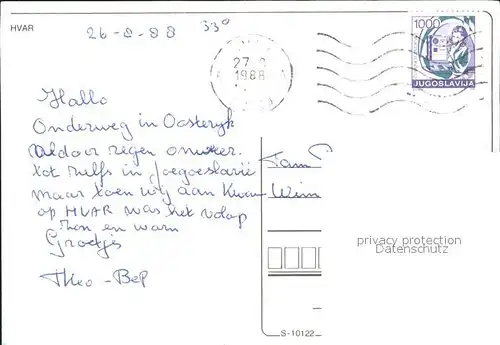 HVAR
26-8-88 33°
27.
1988
1000
JUGOSLAVIJA
Hallo
Onderweg in Oosteryk
aldoor regen onweer.
tot zelfs in Joegoeslavië
maar toen wij aan kwam
op HVAR was het volop
zon en warm
Groetjes
Theo - Bep
Fam
Wim
privacy protection
Datenschutz
S-10122